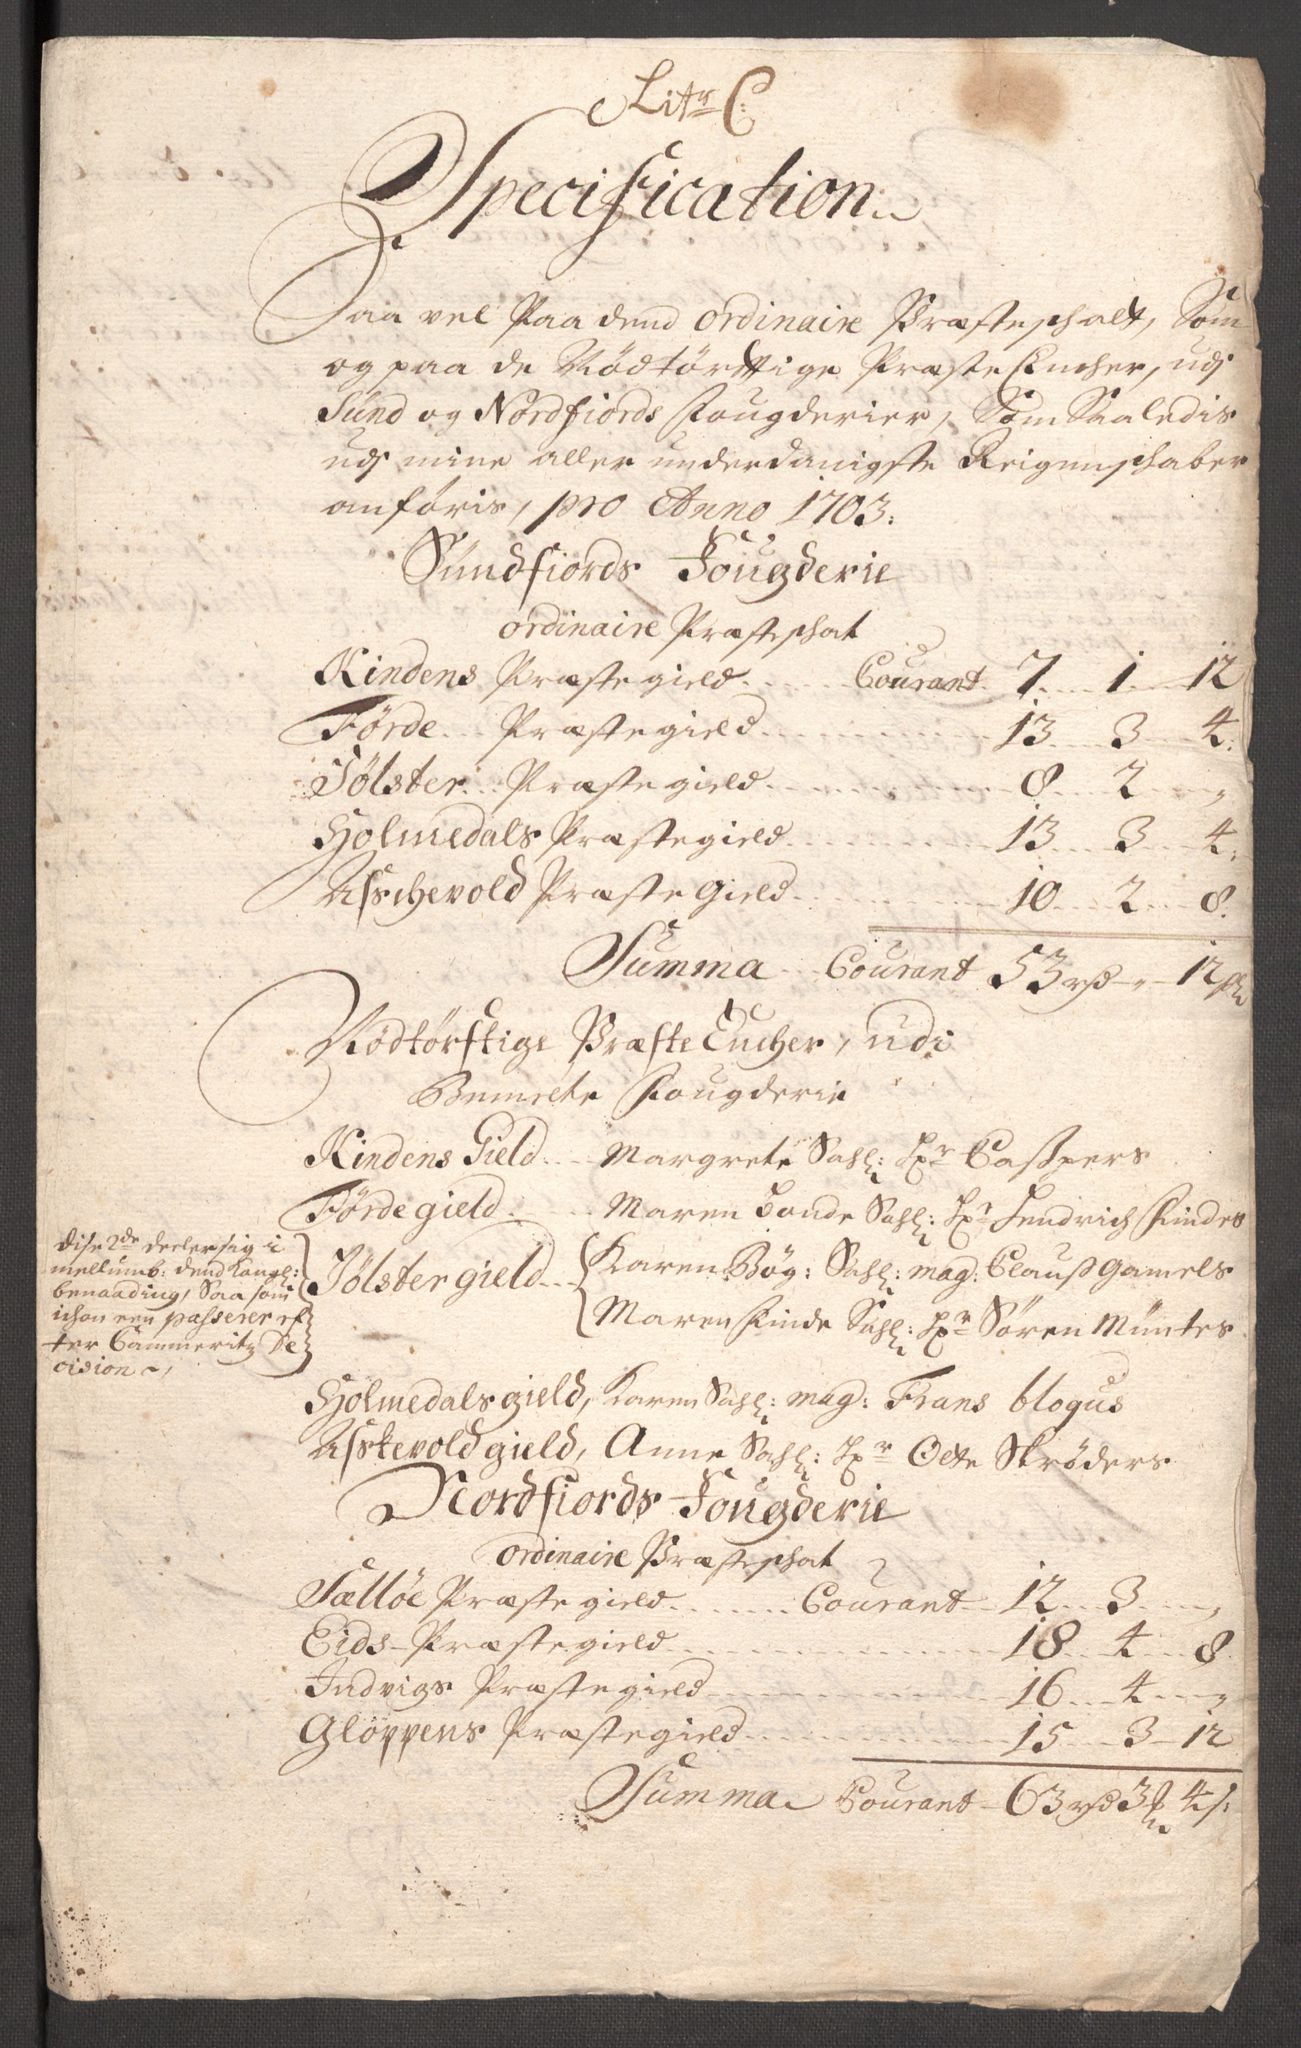 Litr C:
Specification
Saa vel Paa dend ordinaire Præsteschatt, Som
og paa de Nödtörfftige Præste Encher, udj
Sund og Nordfiords Fougderier, Som Saaledis
udj mine aller underdanigste Reigenschaber
anføris, pro Anno 1703:
Sündfiords Fougderie
ordinaire Præsteschat
Kindens Præstegield Courant 7 1 12
Førde Præstegield 13 3 4
Jølster Præstegield 8 2 „
Holmedals Præstegield 13 3 4
Asschevold Præstegield 10 2 8
Summa Courant 53 rd „ 12 sk
Nödtörftige Præste Encher, udi
Bemelte Fougderie
Kindens Gield Margrete Sahl: Hr Caspers
Førde gield Maren Bonde Sahl: Hr Hendrich Findes
Jølster gield Karen Bøg: Sahl: mag: Clauss Gamels
Maren Finde Sahl: Hr Søren Müntes
dise 2de deeler sig i
mellumb: dend Kongl:
benaading, Saa som
ichon een passerer ef
ter Cammeritz De
cision
Holmedals gield, Karen Sahl: mag: Frans blogus
Asskevold gield, Anne Sahl: Hr Otte Skrøders
Nordfiords Fougderie
ordinaire Præsteschat
Sælløe Præstegield Courant 12 3 „
Eids Præstegield 18 4 8
Indvigs Præstegield 16 4 „
Glöppens Præstegield 15 3 12
Summa Courant 63 rd 3 4 s: